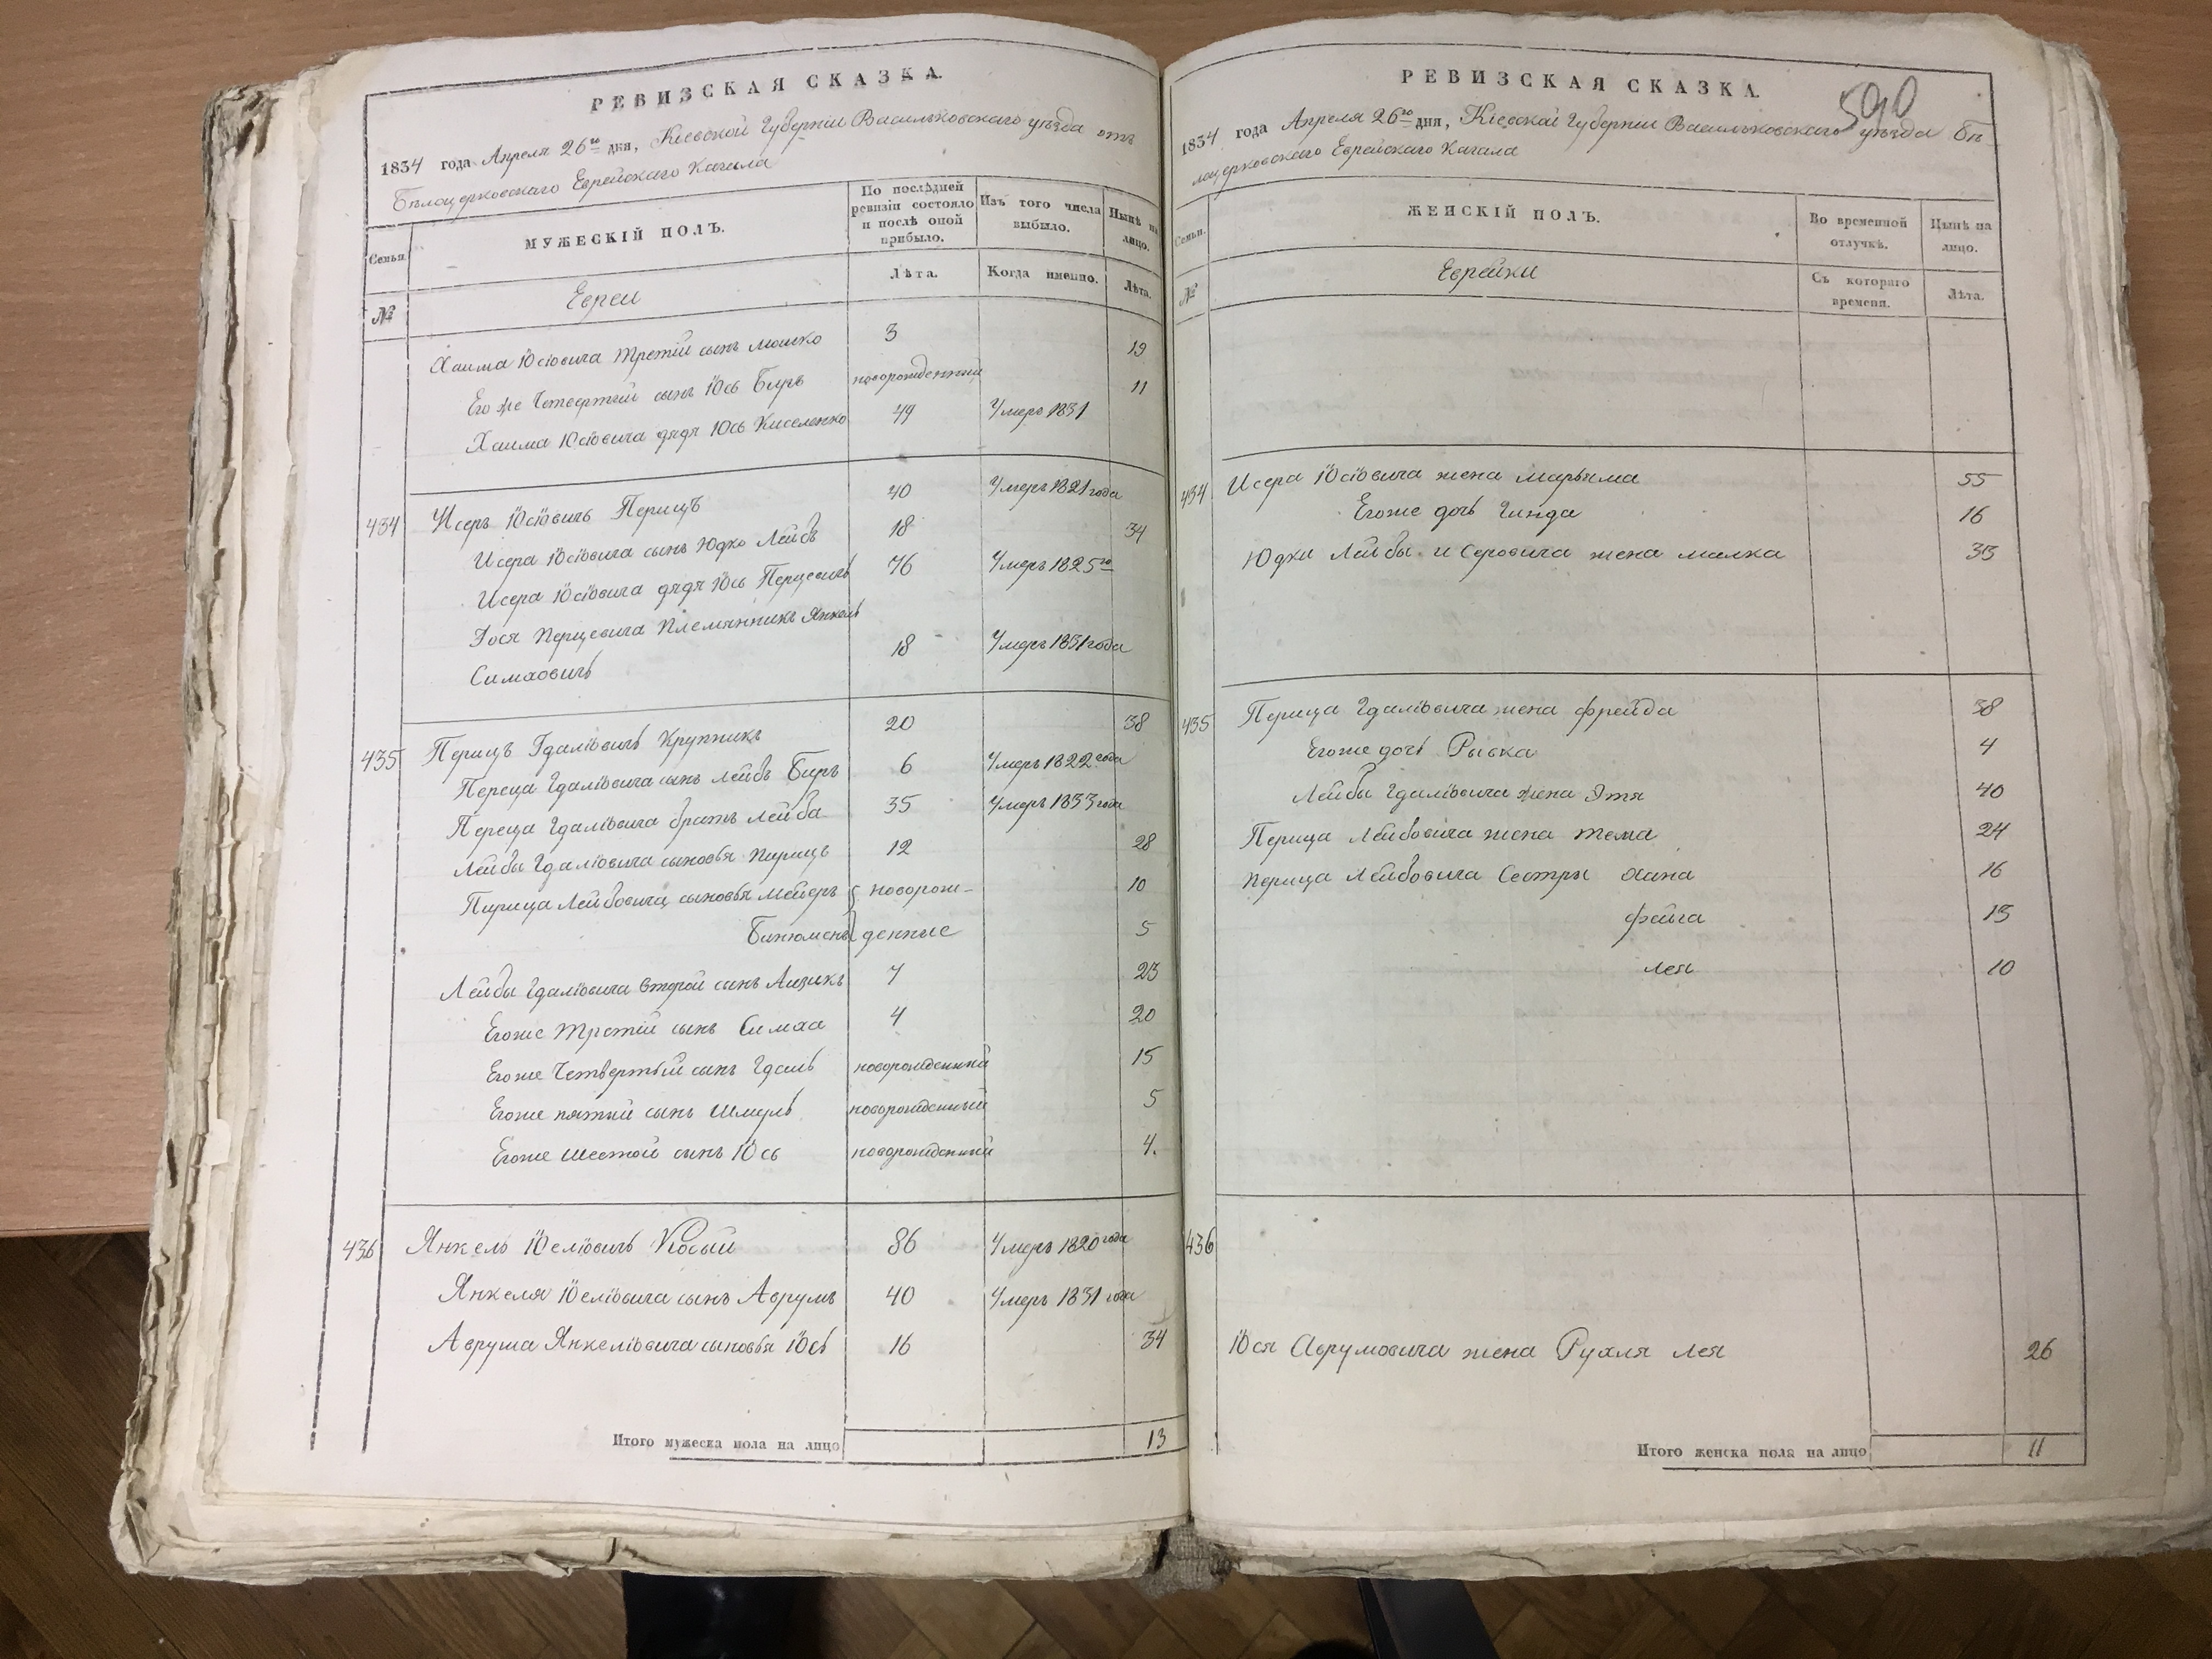 РЕВИЗСКАЯ СКАЗКА.
1834 года Апреля 26го дня, Кіевской Губерніи Васильковскаго уѣзда отъ
Бѣлоцерковскаго Еврейскаго Кагала
Семьи.
МУЖЕСКІЙ ПОЛЪ.
По послѣдней ревизіи состояло и послѣ оной прибыло.
Изъ того числа выбыло.
Нынѣ на лицо.
№
Евреи
Лѣта.
Когда именно.
Лѣта.
Хаима Іосіовича третій сынъ Мошко 3 19
Его же Четвертый сынъ Іось Биръ новорожденный 11
Хаима Іосіовича дядя Іось Киселенко 49 Умеръ 1831
434 Исеръ Іосіовичъ Перицъ 40 Умеръ 1821 года
Исера Іосіовича сынъ Юдко Лейбъ 18 34
Исера Іосіовича дядя Іось Перцевичъ 76 Умеръ 1825го
Іося Перцевича Племянникъ Янкель
Симховичъ 18 Умеръ 1831 года
435 Перицъ Гдаліовичъ Крупникъ 20 38
Переца Гдаліовича сынъ Лейбъ Биръ 6 Умеръ 1822 года
Переца Гдаліовича братъ Лейба 35 Умеръ 1833 года
Лейбы Гдаліовича сыновья Пирицъ 12 28
Пирица Лейбовича сыновья Мейеръ новорож- 10
Бинюменъ денные 5
Лейбы Гдаліовича второй сынъ Аизикъ 7 23
Егоже Третій сынъ Симха 4 20
Егоже Четвертый сынъ Гдаль новорожденный 15
Егоже пятый сынъ Шмуль новорожденный 5
Егоже шестой сынъ Іось новорожденный 4.
436 Янкель Іосліовичъ Косый 86 Умеръ 1820 года
Янкеля Іосліовича сынъ Аврумъ 40 Умеръ 1831 года
Аврума Янкеліовича сыновья Іось 16 34
Итого мужеска пола на лицо 13
590
РЕВИЗСКАЯ СКАЗКА.
1834 года Апреля 26го дня, Кіевской Губерніи Васильковскаго уѣзда Бѣ-
лоцерковскаго Еврейскаго Кагала
Семьи.
ЖЕНСКІЙ ПОЛЪ.
Во временной отлучкѣ.
Нынѣ на лицо.
№
Еврейки
Съ котораго времени.
Лѣта.
434 Исера Іосіовича жена Марьяма 55
Егоже дочь Гинда 16
Юдки Лейбы Исеровича жена Малка 33
435 Перица Гдаліовича жена Фрейда 38
Егоже дочь Рывка 4
Лейбы Гдаліовича жена Этя 40
Перица Лейбовича жена Тема 24
Перица Лейбовича Сестры Хана 16
Фейга 13
Лея 10
436
Іося Аврумовича жена Рухля Лея 26
Итого женска пола на лицо 11